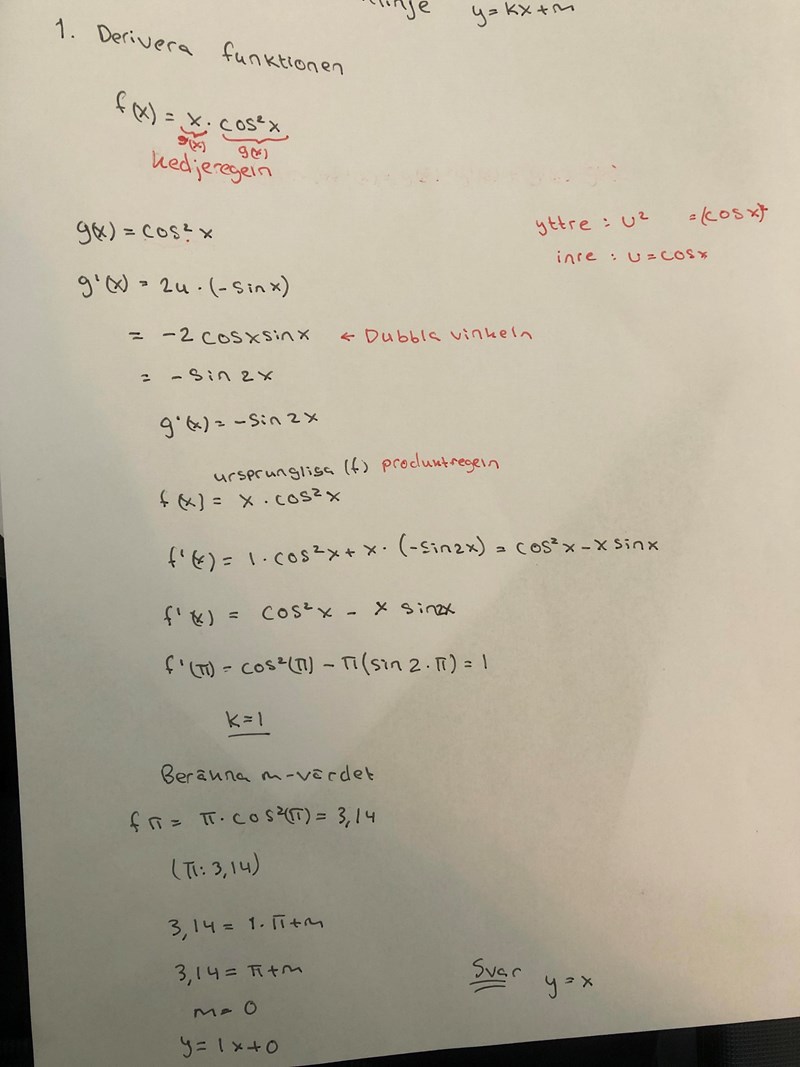 y=kx+m
1. Derivera funktionen
f(x) = x · cos²x
g(x) g(x)
kedjeregeln
g(x) = cos²x
yttre : u² =(cosx)²
inre : u=cosx
g'(x) = 2u · (-sinx)
= -2 cosxsinx ← Dubbla vinkeln
= -sin 2x
g'(x) = -sin 2x
ursprungliga (f) produktregeln
f(x) = x · cos²x
f'(x) = 1·cos²x + x· (-sin2x) = cos²x - x sinx
f'(x) = cos²x - x sin2x
f'(π) = cos²(π) - π(sin 2·π) = 1
k=1
Beräkna m-värdet
f π = π·cos²(π) = 3,14
(π: 3,14)
3,14 = 1·π+m
3,14 = π+m
m= 0
y= 1x+0
Svar y=x